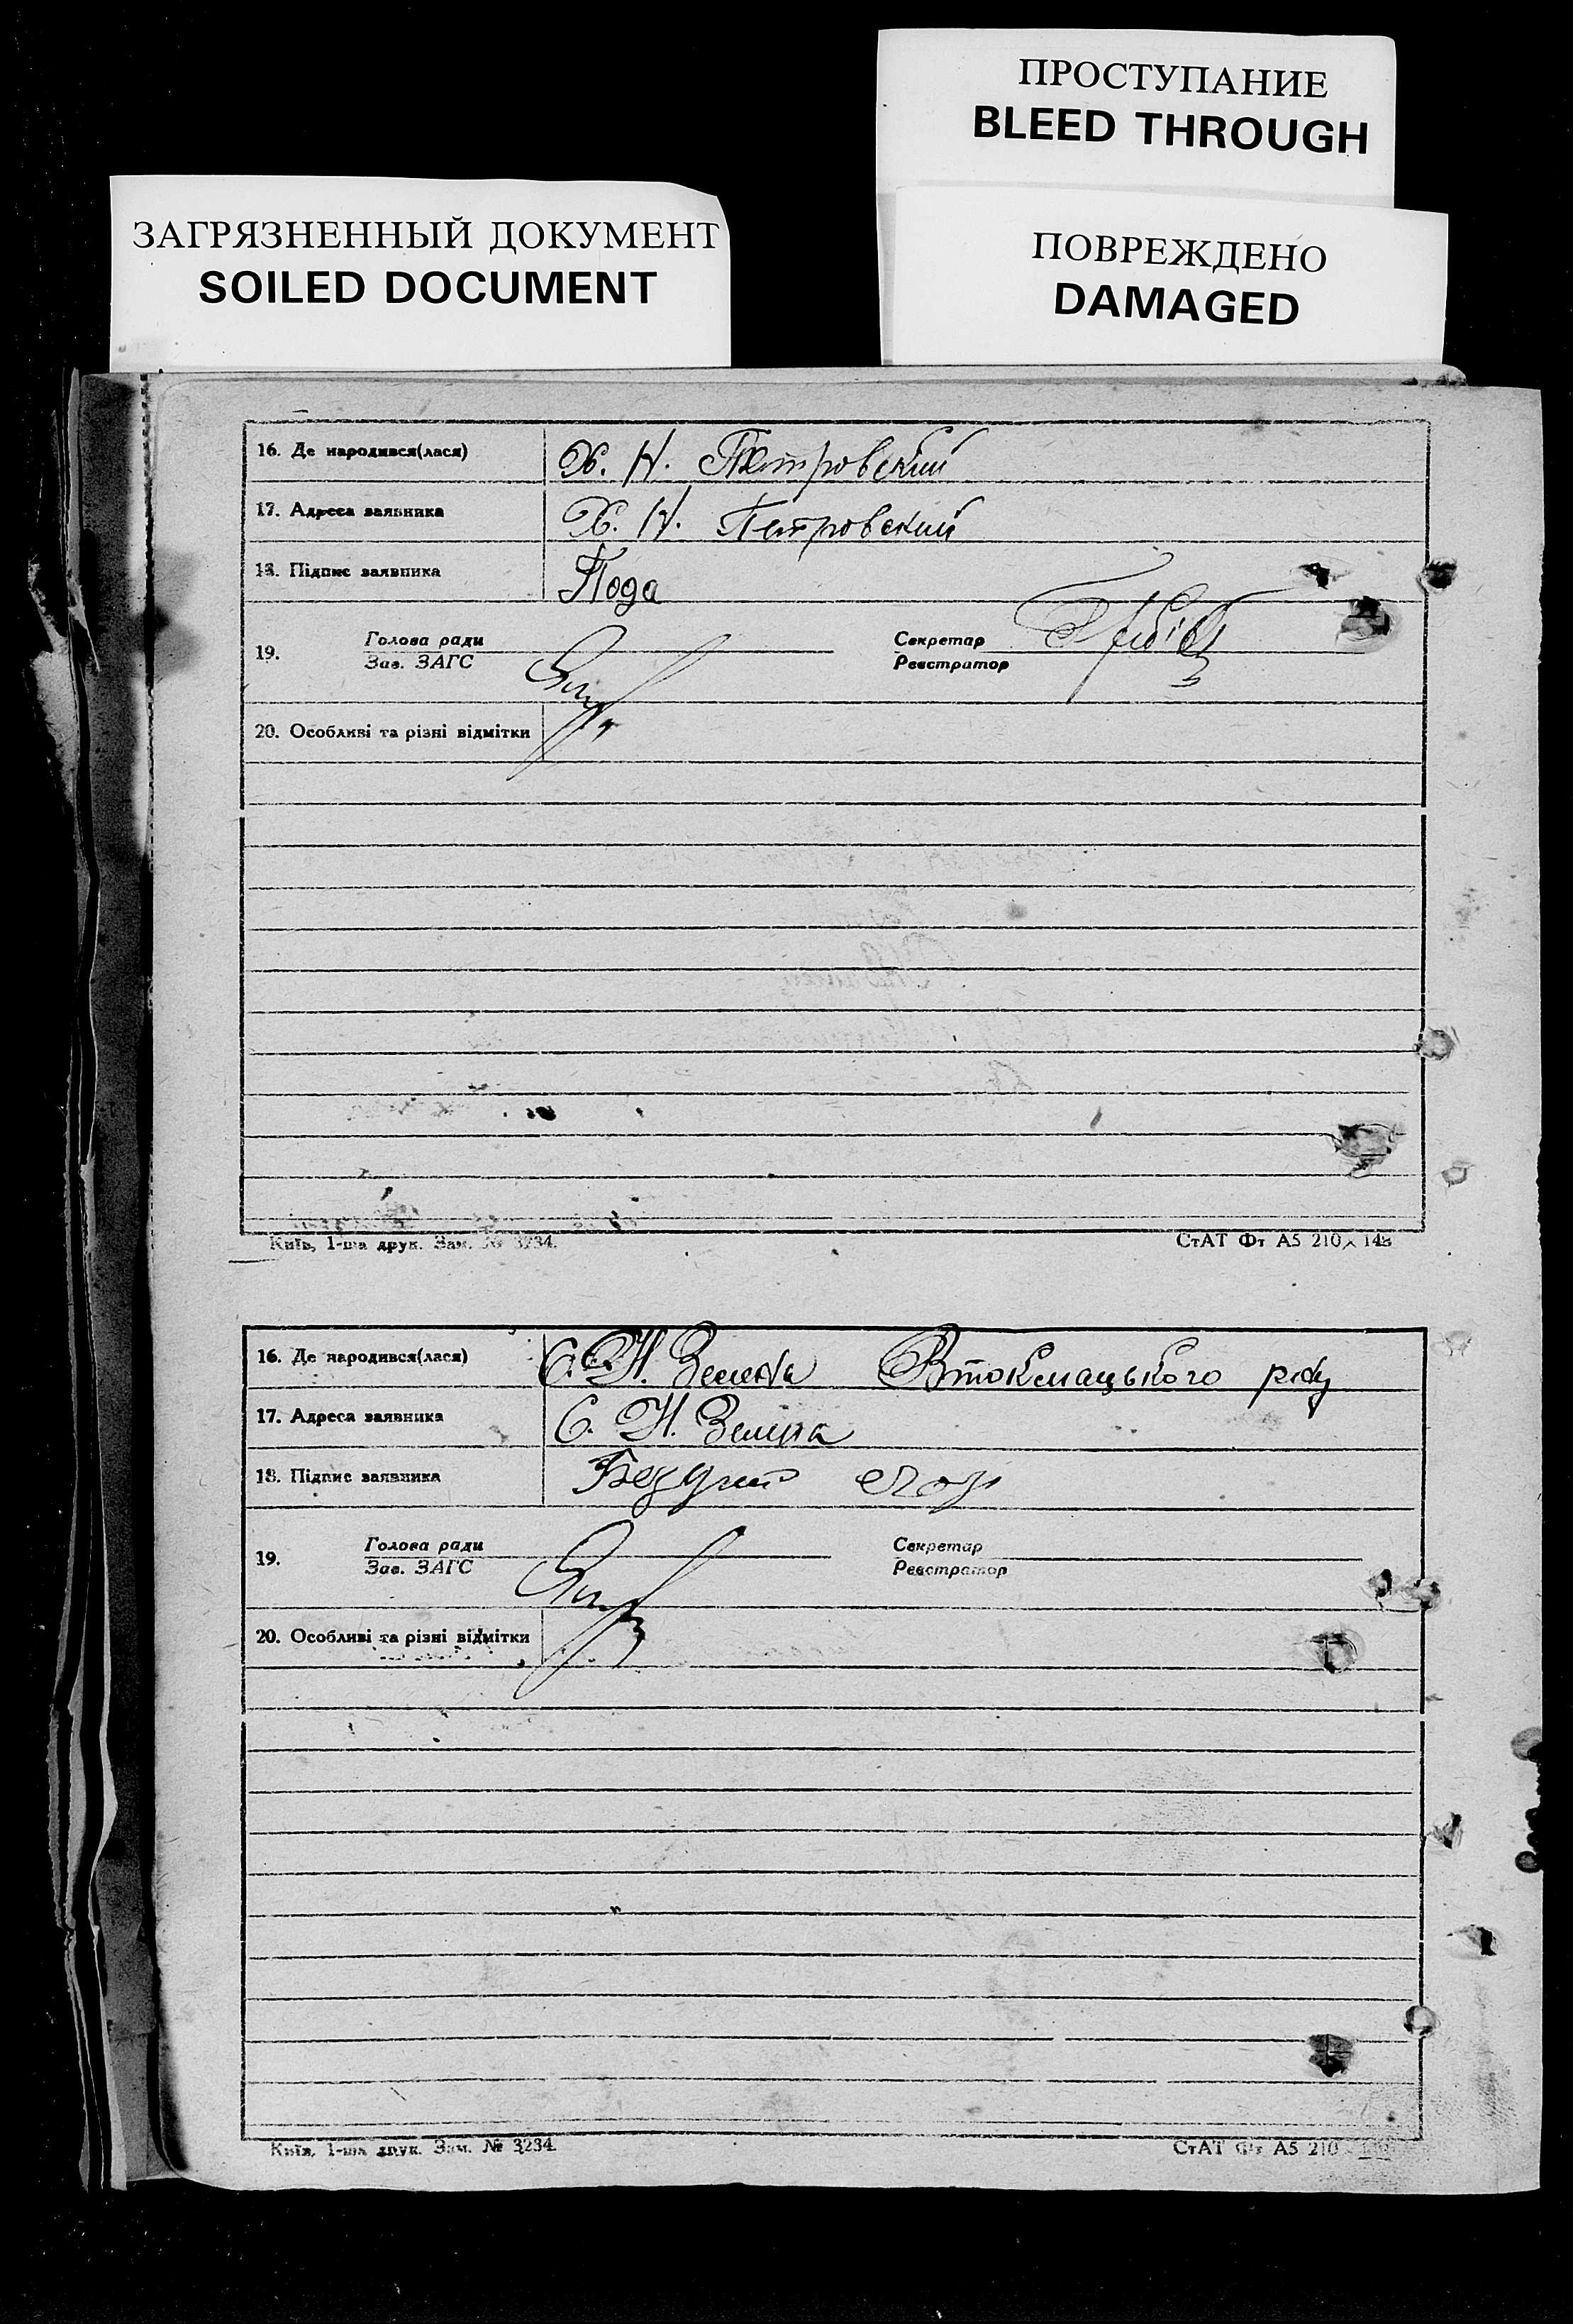 ПРОСТУПАНИЕ
BLEED THROUGH
ЗАГРЯЗНЕННЫЙ ДОКУМЕНТ
SOILED DOCUMENT
ПОВРЕЖДЕНО
DAMAGED
16. Де народився(лася) Х. Н. Петровский
17. Адреса заявника Х. Н. Петровский
18. Підпис заявника Пода
19. Голова ради Секретар
Зав. ЗАГС Реєстратор
20. Особливі та різні відмітки
Київ, 1-ша друк. Зам. № 3234. СтАТ Фт А5 210×148
16. Де народився(лася) С. Н. Втокмацького р-ну
17. Адреса заявника С. Н.
18. Підпис заявника
19. Голова ради Секретар
Зав. ЗАГС Реєстратор
20. Особливі та різні відмітки
Київ, 1-ша друк. Зам. № 3234. СтАТ Фт А5 210